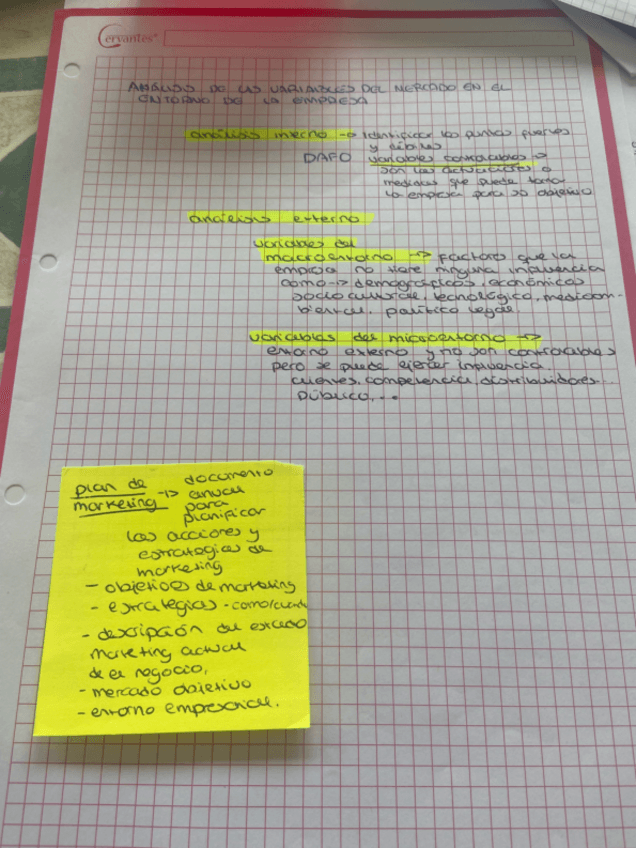 Cervantes
ANÁLISIS DE LAS VARIABLES DEL MERCADO EN EL
ENTORNO DE LA EMPRESA
análisis interno -> Identificar los puntos fuertes
y débiles
DAFO variables controlables ->
son las actuaciones o
medidas que puede tomar
la empresa para su objetivo
análisis externo
variables del
macroentorno -> Factores que la
empresa no tiene ninguna influencia
como -> demográficos, económicos
sociocultural, tecnológico, medioam-
biental, político legal.
variables del microentorno ->
entorno externo y no son controlables
pero se puede ejercer influencia
clientes, competencia, distribuidores...
Público,...
plan de
marketing -> documento
anual
para
planificar
las acciones y
estrategias de
marketing
- objetivos de marketing
- estrategias - como/cuando
- descripción del estado
marketing actual
de el negocio,
- mercado objetivo
- entorno empresarial.